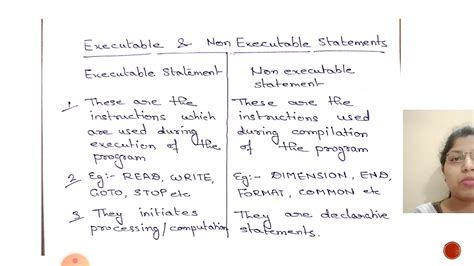 Executable & Non Executable Statements
Executable Statement
Non executable
statement
1. These are the
instructions which
are used during
execution of the
program
These are the
instructions used
during compilation
of the program
2. Eg:- READ, WRITE,
GOTO, STOP etc
Eg:- DIMENSION, END,
FORMAT, COMMON etc
3. They initiates
processing/computation
They are declarative
statements.